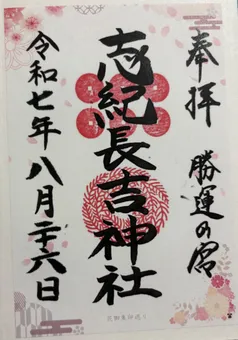 奉拝
勝運の宮
志紀長吉神社
令和七年八月二十六日